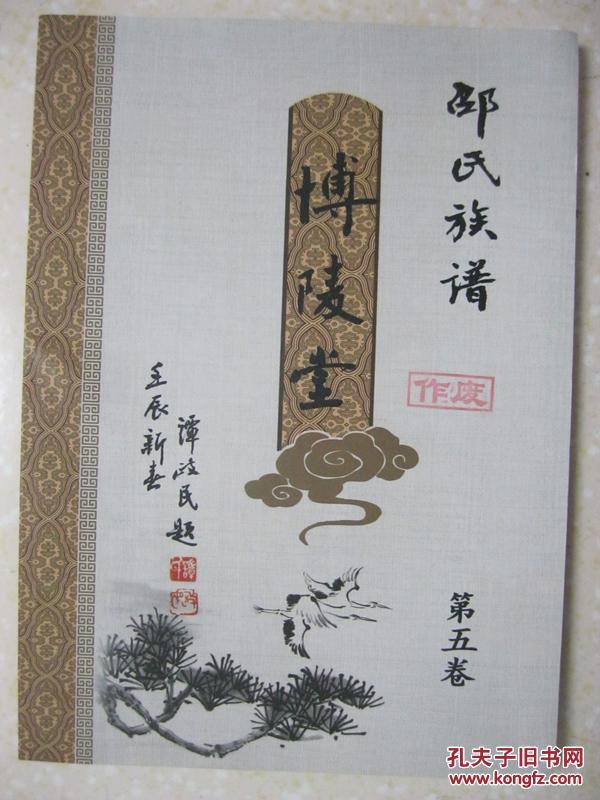 邵氏族谱
博陵堂
作废
谭政民题
壬辰新春
第五卷
孔夫子旧书网
www.kongfz.com